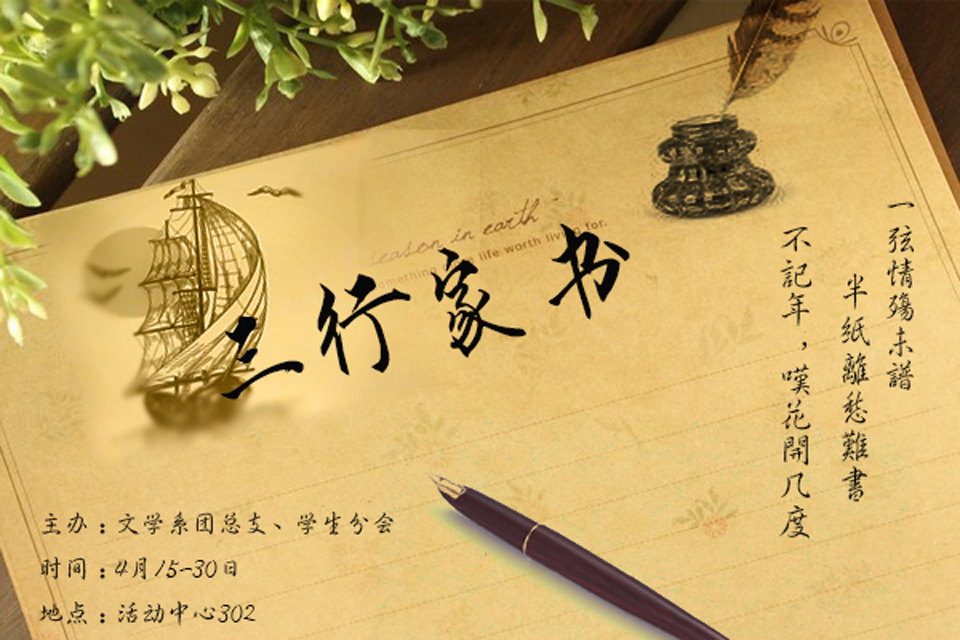 season in earth
something in life worth living for.
三行家书
一弦情殇未譜
半纸離愁難書
不記年，嘆花開几度
主办：文学系团总支、学生分会
时间：4月15-30日
地点：活动中心302